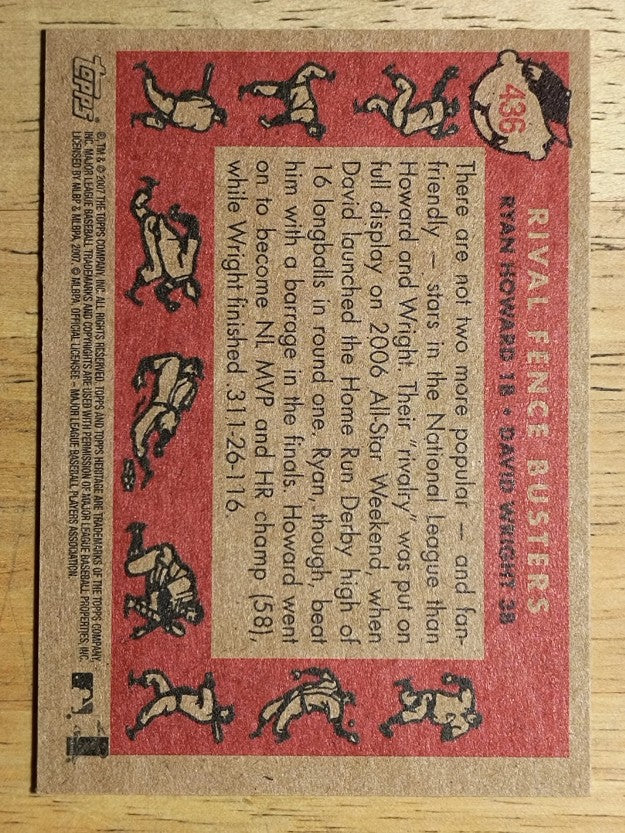 436
RIVAL FENCE BUSTERS
RYAN HOWARD 1B • DAVID WRIGHT 3B
There are not two more popular — and fan-
friendly — stars in the National League than
Howard and Wright. Their "rivalry" was put on
full display on 2006 All-Star Weekend, when
David launched the Home Run Derby high of
16 longballs in round one. Ryan, though, beat
him with a barrage in the finals. Howard went
on to become NL MVP and HR champ (58),
while Wright finished .311-26-116.
topps
®, TM & © 2007 THE TOPPS COMPANY, INC. ALL RIGHTS RESERVED. TOPPS AND TOPPS HERITAGE ARE TRADEMARKS OF THE TOPPS COMPANY,
INC. MAJOR LEAGUE BASEBALL TRADEMARKS AND COPYRIGHTS ARE USED WITH PERMISSION OF MAJOR LEAGUE BASEBALL PROPERTIES, INC.
LICENSED BY MLBP & MLBPA, 2007. © MLBPA, OFFICIAL LICENSEE – MAJOR LEAGUE BASEBALL PLAYERS ASSOCIATION.